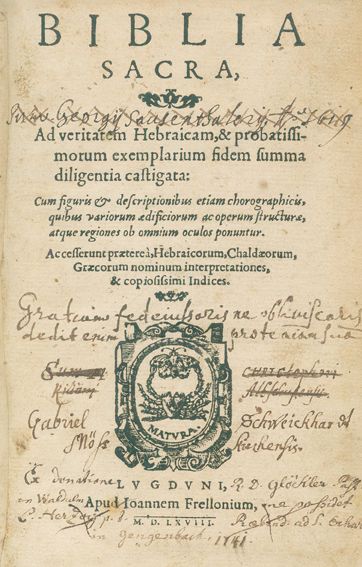 BIBLIA
SACRA,
Georgij 1619
Ad veritatem Hebraicam, & probatissi-
morum exemplarium fidem summa
diligentia castigata:
Cum figuris & descriptionibus etiam chorographicis,
quibus variorum ædificiorum ac operum structuræ,
atque regiones ob omnium oculos ponuntur.
Accesserunt prætereà, Hebraicorum, Chaldæorum,
Græcorum nominum interpretationes,
& copiosissimi Indices.
Gratiam fideiussoris ne obliviscaris
dedit enim pro te animam suā
MATVRA.
Gabriel Schweickhardt
Ex donatione
LVGDVNI,
R. D. Glöckler
Apud Ioannem Frellonium,
me possidet
M. D. LXVIII.
in gengenbach, 1741